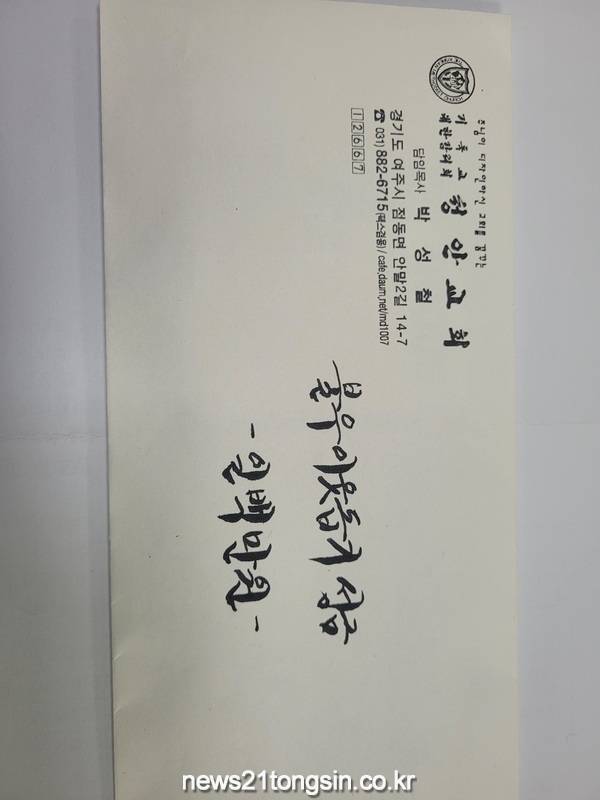 주님이 디자인하신 교회를 꿈꾸는
기독교 대한감리회 청안교회
담임목사 박성철
경기도 여주시 점동면 안말2길 14-7
☎ 031) 882-6715(팩스겸용) / cafe.daum.net/md1007
12667
불우이웃돕기 성금
- 일백만원 -
news21tongsin.co.kr